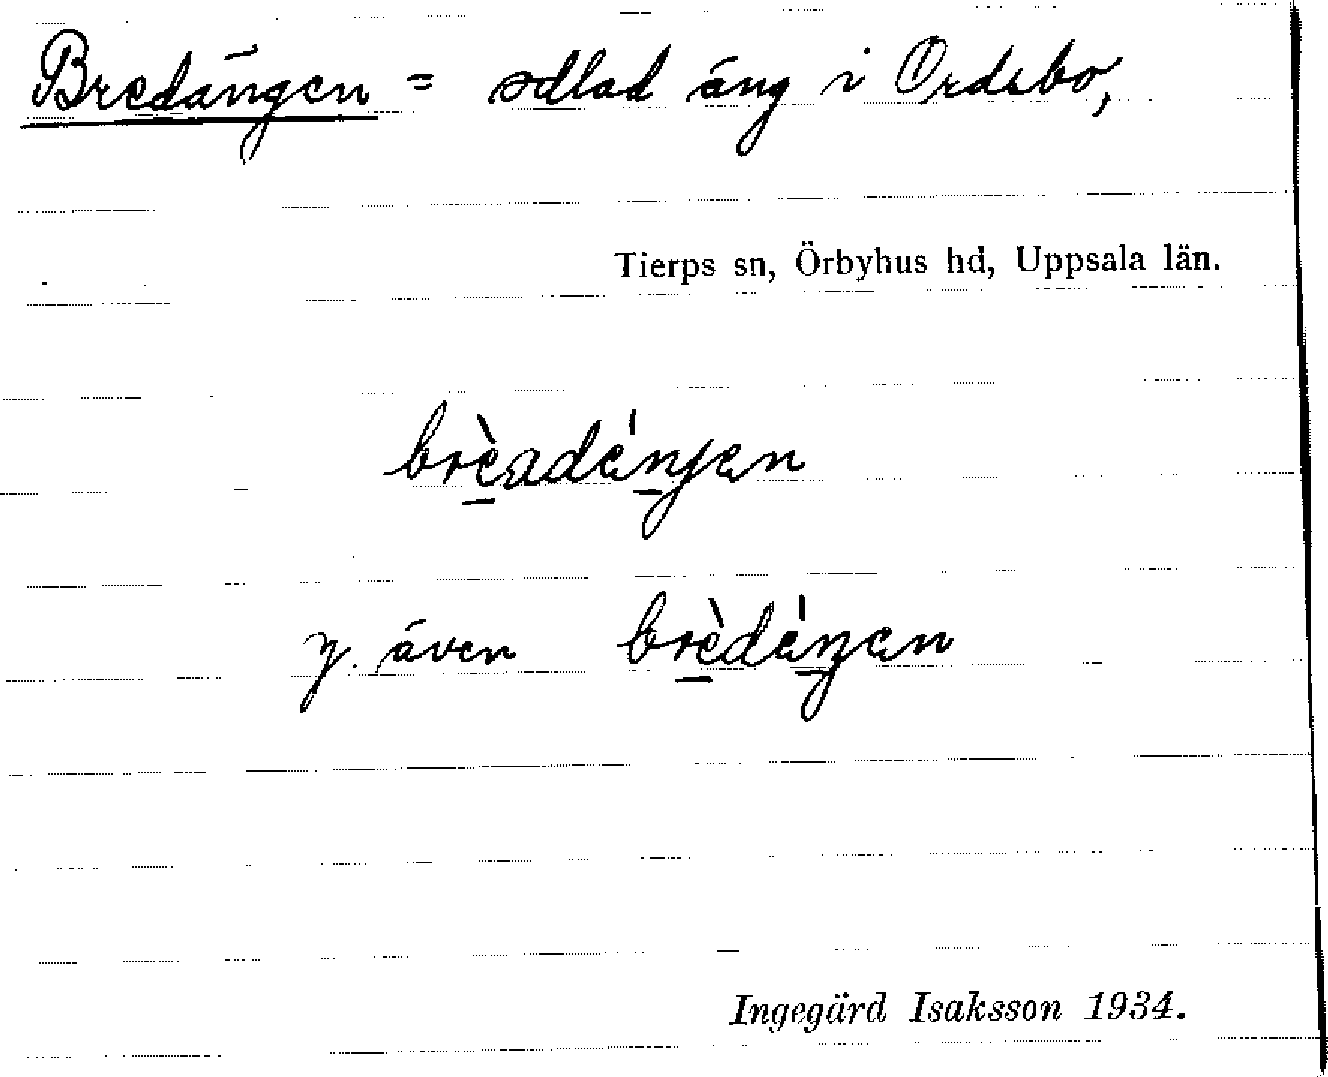 Bredängen = odlad äng i Ordsbo,
Tierps sn, Örbyhus hd, Uppsala län.
y. även
Ingegärd Isaksson 1934.